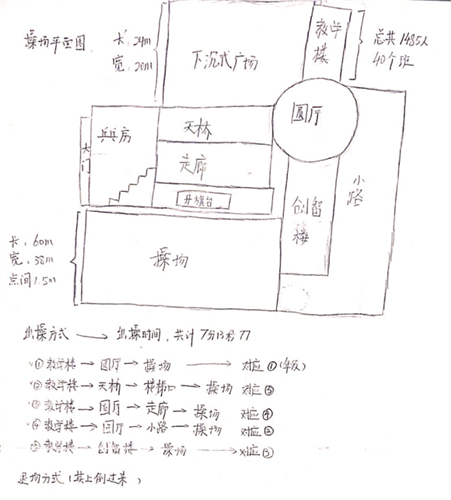 操场平面图
长:24m
宽:20m
下沉式广场
教学楼
总共1485人
40个班
圆厅
乒乓房
天林
大门
走廊
升旗台
小路
创智楼
长:60m
宽:38m
点间1.5m
操场
出操方式 → 出操时间,共计7分13秒77
①教学楼→圆厅→操场 → 对应①(年级)
②教学楼→天林→楼梯口→操场 对应
③教学楼→圆厅→走廊→操场 对应④
④教学楼→圆厅→小路→操场 对应②
⑤教学楼→创智楼→操场 → 对应③
退场方式(按上倒过来)